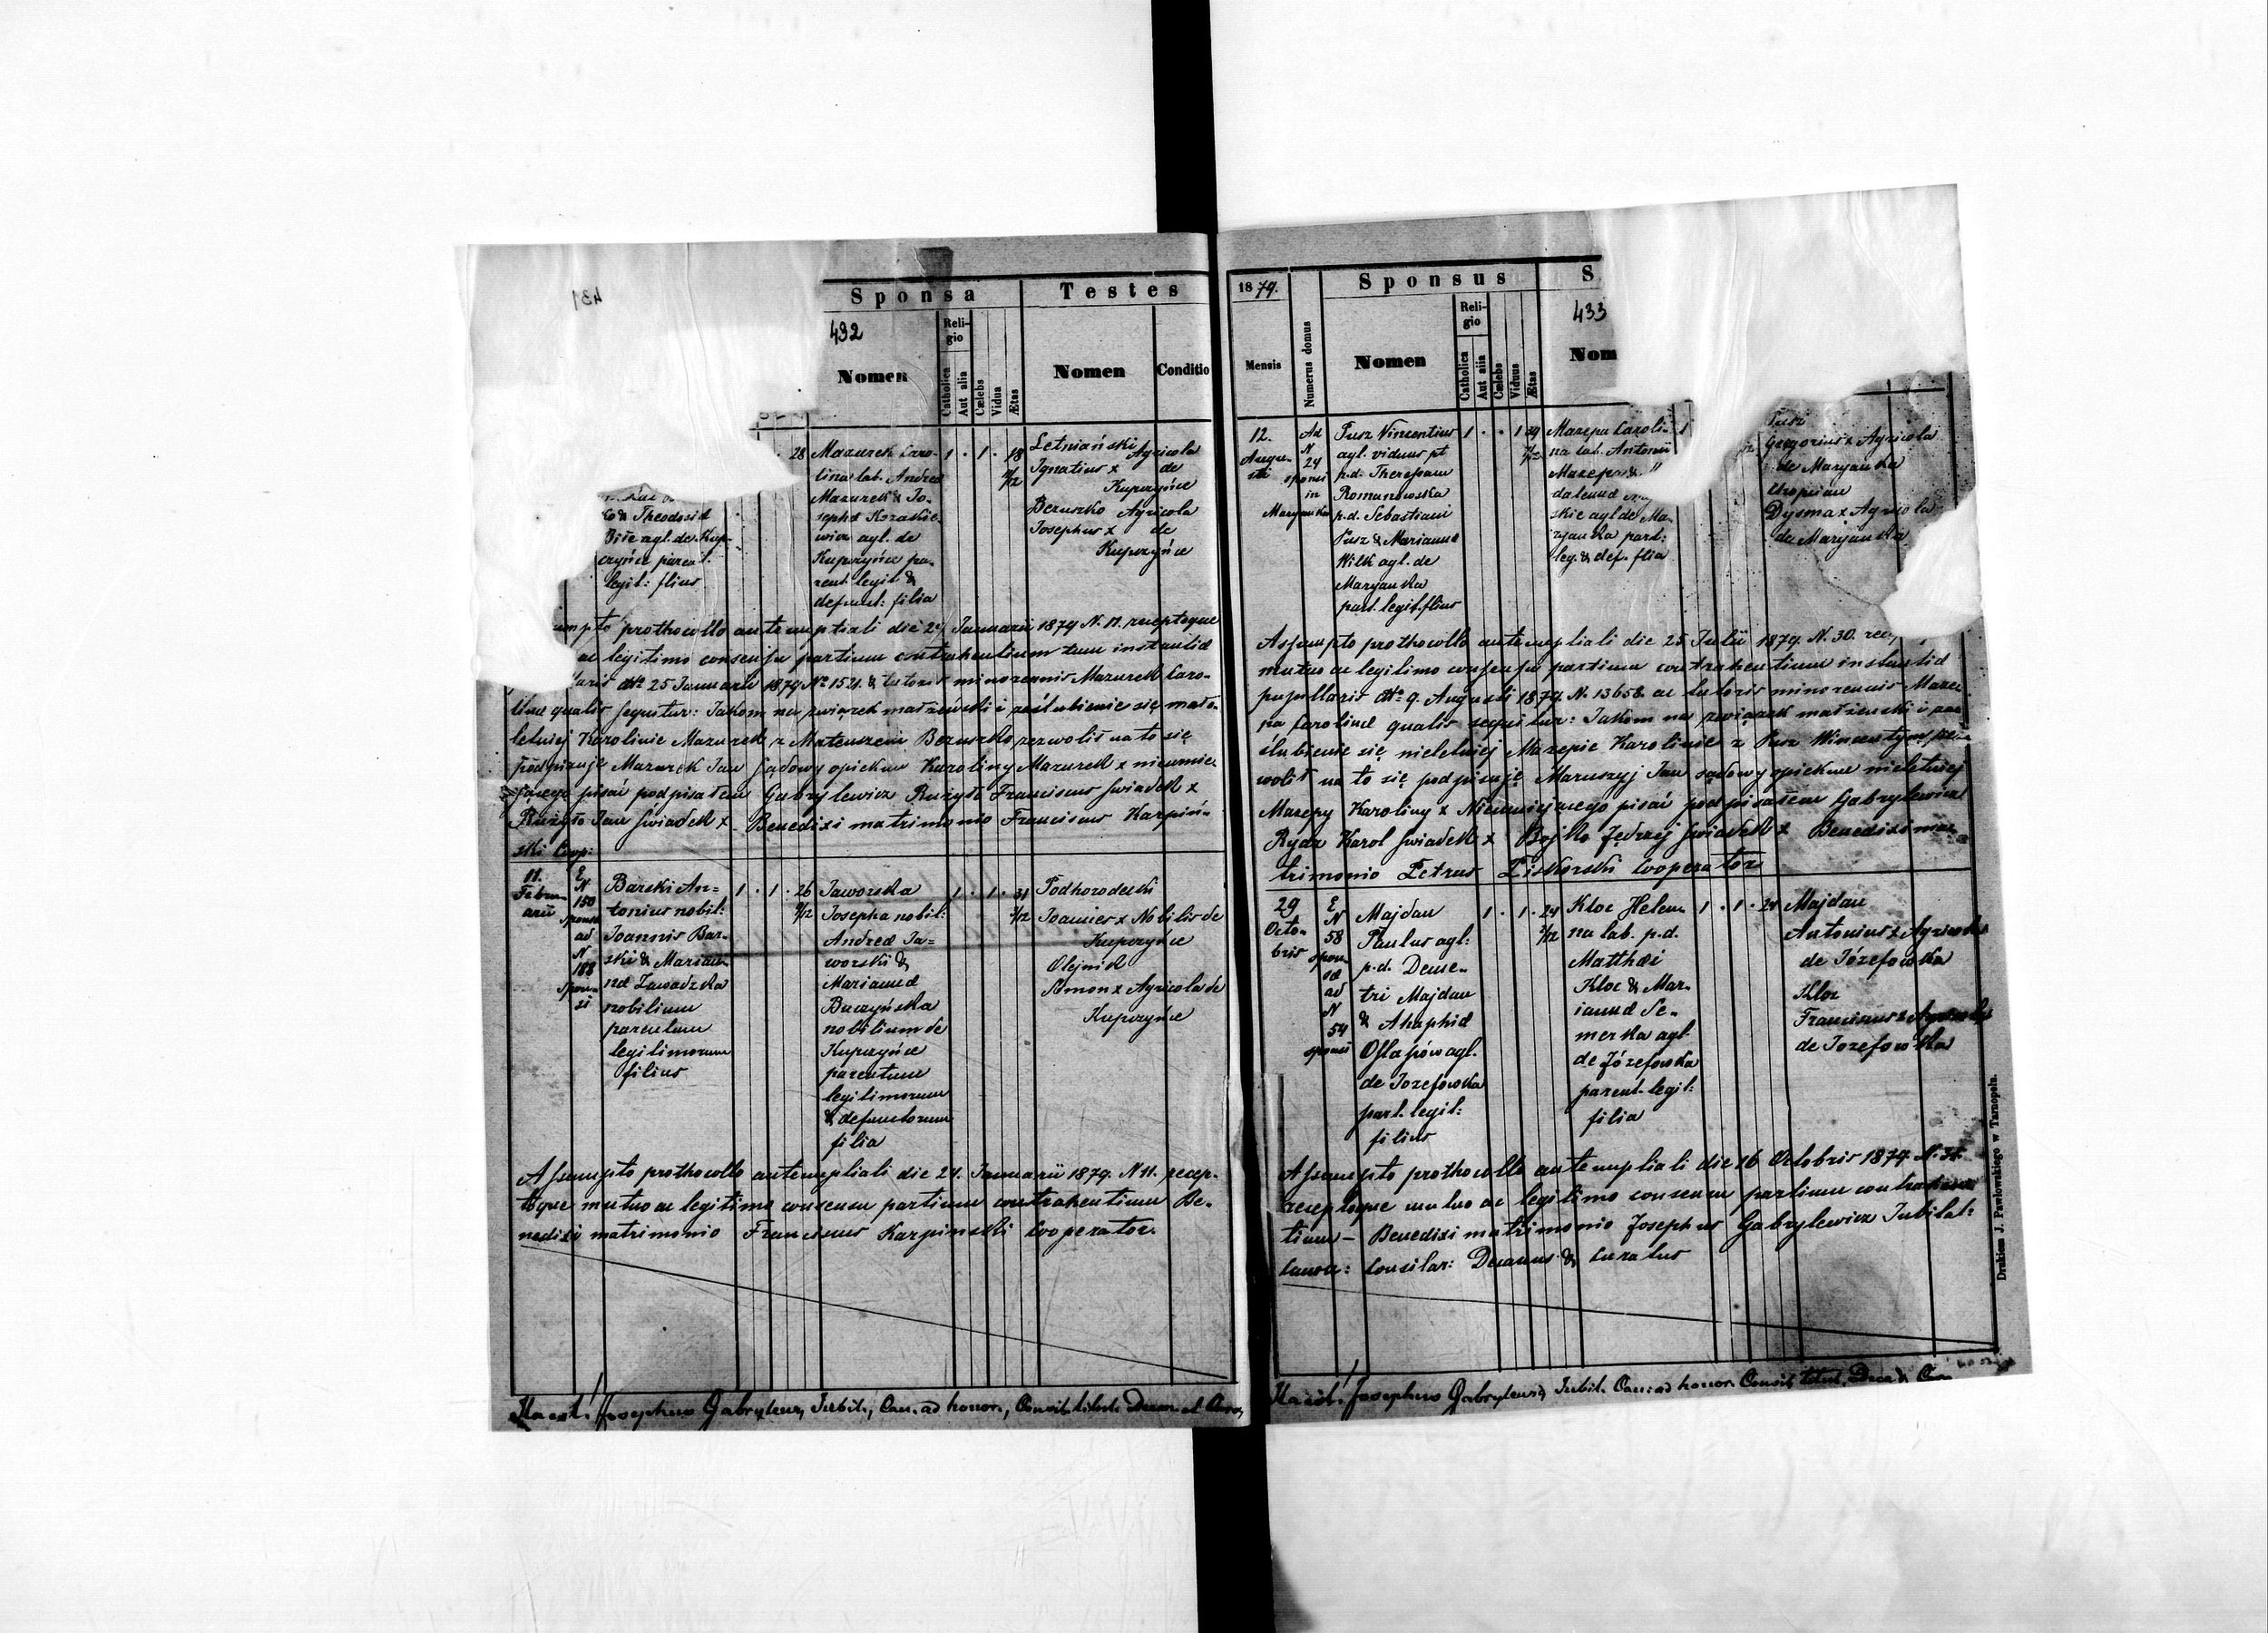 431
Sponsa
Testes
432
Religio
Nomen
Catholica
Aut alia
Cælebs
Vidua
Ætas
Nomen
Conditio
28 Mazurek Caro- 1 . 1 . 18
lina lab. Andreæ
Mazurek & Jo-
sephæ Kozakie-
wicz agl. de
Kupczyńce pa-
rent. legit &
defunct: filia
Letniański Agricola
Ignatius x de
Kupczyńce
Bezuszko Agricola
Josephus x de
Kupczyńce
& Theodosiæ
agl. de Kup-
czyńce parent.
legit: filius
prothocollo antenuptiali die 24 Januarii 1879 N. 11. receptoque
ac legitimo consensu partium contrahentium tum instantiæ
dtto 25 Januarii 1879 No 1521. & tutoris minorennis Mazurek Caro-
linæ qualis sequitur: Jakom na związek małżeński i zaślubienie się mało-
letniej Karolinie Mazurek z Mateuszem Bezuszko zezwolił na to się
podpisuje Mazurek Jan sądowy opiekun Karoliny Mazurek x nieumie-
jącego pisać podpisałem Gabrylewicz Rużyło Franciscus świadek x
Rużyło Jan świadek x Benedixi matrimonio Franciscus Karpiń-
ski Coop:
11.
Febru-
arii
E
N
150
sponsæ
ad
N
188
spon-
si
Barski An- 1 . 1 . 26
tonius nobil:
Joannis Bar-
ski & Marian-
næ Zawadzka
nobilium
parentum
legitimorum
filius
Jaworska 1 . 1 . 31
Josepha nobil:
Andreæ Ja-
worski &
Mariannæ
Buczyńska
nobilium de
Kupczyńce
parentum
legitimorum
& defunctorum
filia
Podhorodecki
Joannes x Nobilis de
Kupczyńce
Olejnik
Simon x Agricola de
Kupczyńce
Assumpto prothocollo antenuptiali die 24. Januarii 1879. N 11. recep-
toque mutuo ac legitimo consensu partium contrahentium Be-
nedixi matrimonio Franciscus Karpinski Cooperator.
Ita est! Josephus Gabrylewicz, Jubil., Can. ad honor., Consil. titul. Decan et Cur.
1879.
Sponsus
S
433
Mensis
Numerus domus
Nomen
Religio
Catholica
Aut alia
Cælebs
Viduus
Ætas
Nom
12.
Augu-
sti
Ad
N
24
sponsi
in
Maryanka
Pusz Vincentius 1 . . 1
agl. viduus pt
p.d. Therepam
Romanowska
p.d. Sebastiani
Pusz & Mariannæ
Wilk agl. de
Maryanka
part. legit. filius
Mazepa Caroli- 1
na lab. Antonii
Mazepa &
dalenæ
skie agl de Ma-
ryanka part:
leg. & def. filia
Pusz
Gregorius x Agricola
de Maryanka
Dysma x Agricola
de Maryanka
Assumpto prothocollo antenuptiali die 25 Julii 1879. N. 30.
mutuo ac legitimo consensu partium contrahentium instantiæ
pupillaris dtto 9. Augusti 1879. N. 13658. ac tutoris minorennis Maze-
pa Carolinæ qualis sequitur: Jakom na związek małżeński i za-
ślubienie się nieletniej Mazepie Karolinie z Pusz Wincentym ze-
wolił na to się podpisuję Maruszyj Jan sądowy opiekun nieletniej
Mazepy Karoliny x Nieumiejącego pisać podpisałem Gabrylewicz
Rydz Karol świadek x Bojko Jędrzej świadek x Benedixi ma-
trimonio Petrus Liskorski Cooperator
29
Octo-
bris
E
N
58
spon-
sæ
ad
N
54
sponsi
Majdan 1 . 1 . 24
Paulus agl:
p.d. Deme-
tri Majdan
& Ahaphiæ
Ostapów agl.
de Jozefowka
part. legit:
filius
Kloc Hele- 1 . 1 . 24
na lab. p.d.
Matthæi
Kloc & Mar-
iannæ Se-
merka agl
de Józefowka
parent. legit:
filia
Majdan
Antonius x Agricola
de Józefowka
Kloc
Franciscus x Agricola
de Jozefowka
Assumpto prothocollo antenuptiali die 16 Octobris 1879 N.
receptoque mutuo ac legitimo consensu partium contrahen-
tium — Benedixi matrimonio Josephus Gabrylewicz Jubilat:
Canon: Consilar: Decanus & Curatus
Ita est! Josephus Gabrylewicz, Jubil. Can: ad honor. Consil. titul. Dec &
Drukiem J. Pawłowskiego w Tarnopolu.